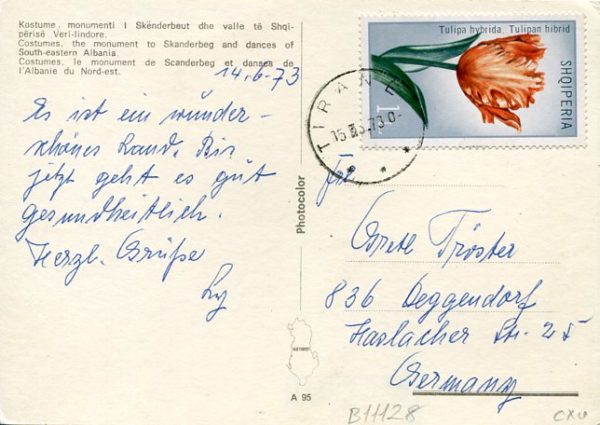 Kostume, monumenti i Skënderbeut dhe valle të Shqi-
përisë Veri-lindore.
Costumes, the monument to Skanderbeg and dances of
South-eastern Albania.
Costumes, le monument de Scanderbeg et danses de
l'Albanie du Nord-est.
14.6.73
Es ist ein wunder-
schönes Land. Bis
jetzt geht es gut
gesundheitlich.
Herzl. Grüße
Tulipa hybrida. Tulipan hibrid
SHQIPERIA
1
TIRANE
Photocolor
Grete Tröster
836 Deggendorf
Haslacher Str. 25
Germany
A 95
B11128